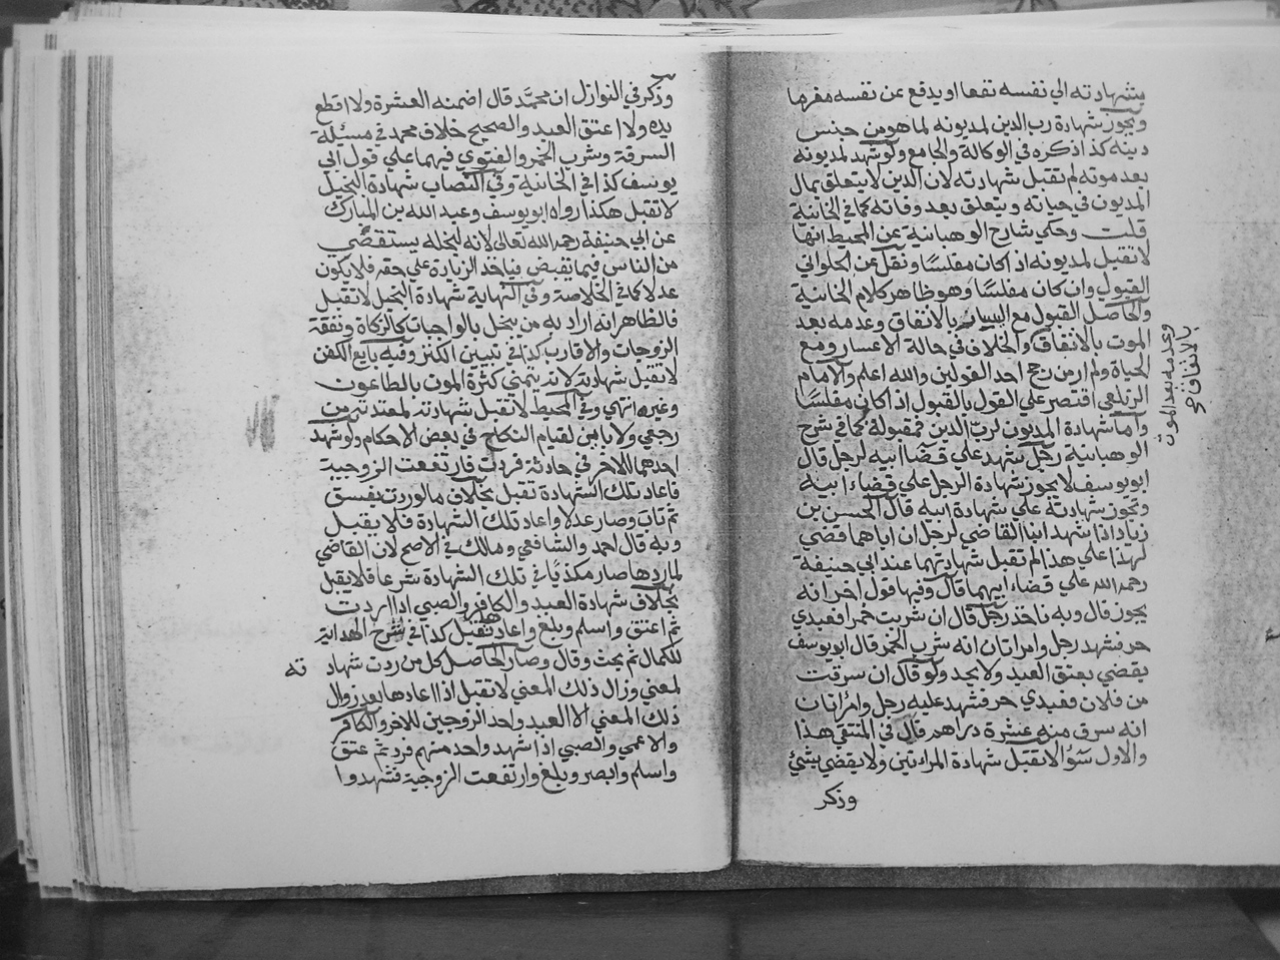 بشهادته الي نفسه نفعا او يدفع عن نفسه مغرما
ويجوز شهادة رب الدين لمديونه لما هو من جنس
دينه كذا ذكره في الوكالة والجامع ولو شهد لمديونه
بعد موته لم تقبل شهادته لان الدين لا يتعلق بمال
المديون في حياته ويتعلق بعد وفاته كما في الخانية
قلت وحكي شارح الوهبانية عن المحيط انها
لا تقبل لمديونه اذ اكان مفلسا ونقل عن الحلواني
القبول وان كان مفلسًا وهو ظاهر كلام الخانية
والحاصل القبول مع اليسار بالاتفاق وعدمه بعد
الموت بالاتفاق والخلاف في حالة الاعسار ومع
الحياة ولم ار من رجح احد القولين والله اعلم والامام
الزيلعي اقتصر علي القول بالقبول اذ اكان مفلسًا
واما شهادة المديون لرب الدين فمقبولة كما في شرح
الوهبانية رجل شهد علي قضا ابيه لرجل قال
ابو يوسف لا يجوز شهادة الرجل علي قضاء ابيه
وتجوز شهادته علي شهادة ابيه قال الحسن بن
زياد اذا شهد ابنا القاضي لرجل ان اباهما قضي
لهذا علي هذا لم تقبل شهادتهما عند ابي حنيفة
رحمه الله علي قضاء ابيهما قال وفيها قول اخر انه
يجوز قال وبه ناخذ رجل قال ان شربت خمرا فعبدي
حر فشهد رجل وامراتان انه شرب الخمر قال ابو يوسف
يقضي بعتق العبد ولا يحد ولو قال ان سرقت
من فلان فعبدي حر فشهد عليه رجل وامراتان
انه سرق منه عشرة دراهم قال في المنتقي هذا
والاول سوٓالا تقبل شهادة المراءتين ولا يقضي بشئ
وذكر
وعدمه بعد الموت
بالاتفاق صح
وذكر في النوازل ان محمدً قال اضمنه العشرة ولا اقطع
يده ولا اعتق العبد والصحيح خلاف محمد في مسئلة
السرقة وشرب الخمر والفتوي فيهما علي قول ابي
يوسف كذا في الخانية وفي النصاب شهادة البخيل
لا تقبل هكذا رواه ابو يوسف وعبد الله بن المبارك
عن ابي حنيفة رحمه الله تعالي لانه لبخله يستقصي
من الناس فيما تقبض فياخذ الزيادة علي حقه فلا يكون
عدلا كما في الخلاصة وفي النهاية شهادة البخيل لا تقبل
فالظاهر انه اراد به من يبخل بالواجبات كالزكاة ونفقة
الزوجات والاقارب كذا في تبيين الكنز وفيه بايع الكفن
لا تقبل شهادته لانه يتمني كثرة الموت بالطاعون
وغيره انتهي وفي المحيط لا تقبل شهادته لمعتدته من
رجعي ولا باين لقيام النكاح في بعض الاحكام ولو شهد
احدهما للاخر في حادثة فردت فارتفعت الزوجية
فاعاد تلك الشهادة تقبل بخلاف ما لو ردت بفسق
ثم تاب وصار عدلا واعاد تلك الشهادة فلا يقبل
وبه قال احمد والشافعي ومالك في الاصح لان القاضي
لما ردها صار مكذبًا في تلك الشهادة شرعا فلا يقبل
بخلاف شهادة العبد والكافر والصبي اذا ردت
ثم اعتق واسلم وبلغ واعاد تقبل كذا في شرح الهداية
للكمال ثم بحث وقال وصار الحاصل كل من ردت شهاد ته
لمعني وزال ذلك المعني لا تقبل اذا اعادها بعد زوال
ذلك المعني الا العبد واحد الزوجين للاخر والكافر
والاعمي والصبي اذا شهد واحد منهم فرد ثم عتق
واسلم وابصر وبلغ وارتفعت الزوجية فشهدوا